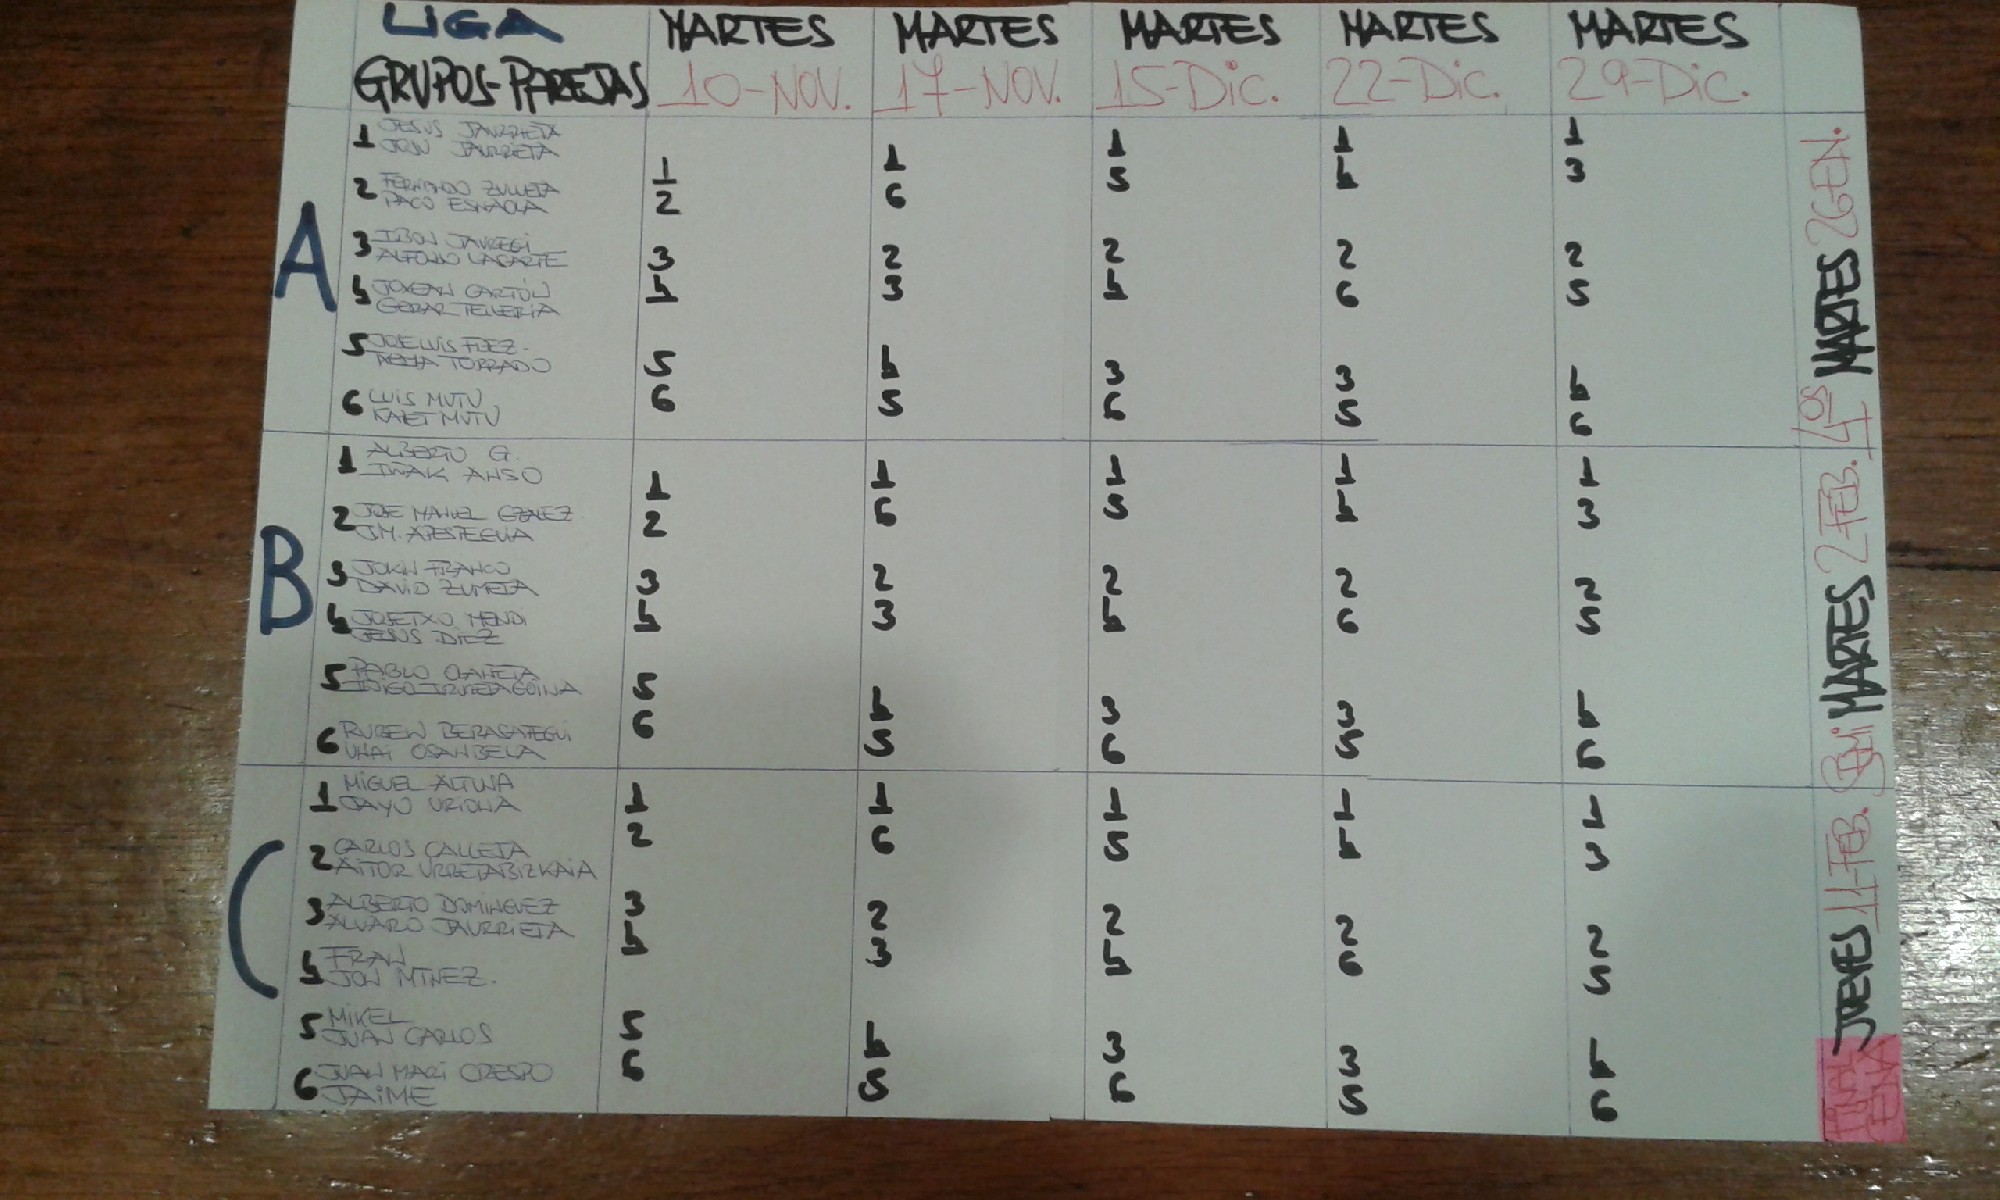 LIGA
GRUPOS-PAREJAS
MARTES
10-NOV.
MARTES
17-NOV.
MARTES
15-Dic.
MARTES
22-Dic.
MARTES
29-Dic.
A
1 JESUS JAURRIETA
JAURRIETA
2 FERNANDO ZULUETA
PACO ESNAOLA
3 IBON JAUREGI
ALFONSO LAGARTE
4 JOXEAN GARTON
TELLERIA
5 JOSE LUIS FDEZ.
TORRADO
6 LUIS MUTU
KALET MUTU
1
2
3
4
5
6
1
6
2
3
4
5
1
5
2
4
3
6
1
4
2
6
3
5
1
3
2
5
4
6
B
1 ALBERTO G.
IÑAK ANSO
2 JOSE MANUEL GZALEZ
J.M. APESTEGUIA
3 JOKIN FRANCO
DAVID ZUMETA
4 JOSETXO MENDI
JESUS DIEZ
5 PABLO OLAÑETA
IÑIGO IRURETAGOINA
6 RUBEN BERASATEGUI
UNAI OSANBELA
1
2
3
4
5
6
1
6
2
3
4
5
1
5
2
4
3
6
1
4
2
6
3
5
1
3
2
5
4
6
C
1 MIGUEL ALTUNA
JAYO URIONA
2 CARLOS CALLEJA
AITOR URRETABIZKAIA
3 ALBERTO DOMINGUEZ
ALVARO JAURRIETA
4 FRAN
JON MTNEZ.
5 MIKEL
JUAN CARLOS
6 JUAN MARI CRESPO
JAIME
1
2
3
4
5
6
1
6
2
3
4
5
1
5
2
4
3
6
1
4
2
6
3
5
1
3
2
5
4
6
4os MARTES 26 EN.
Semi MARTES 2 FEB.
JUEVES 11-FEB.
FINAL
CENA